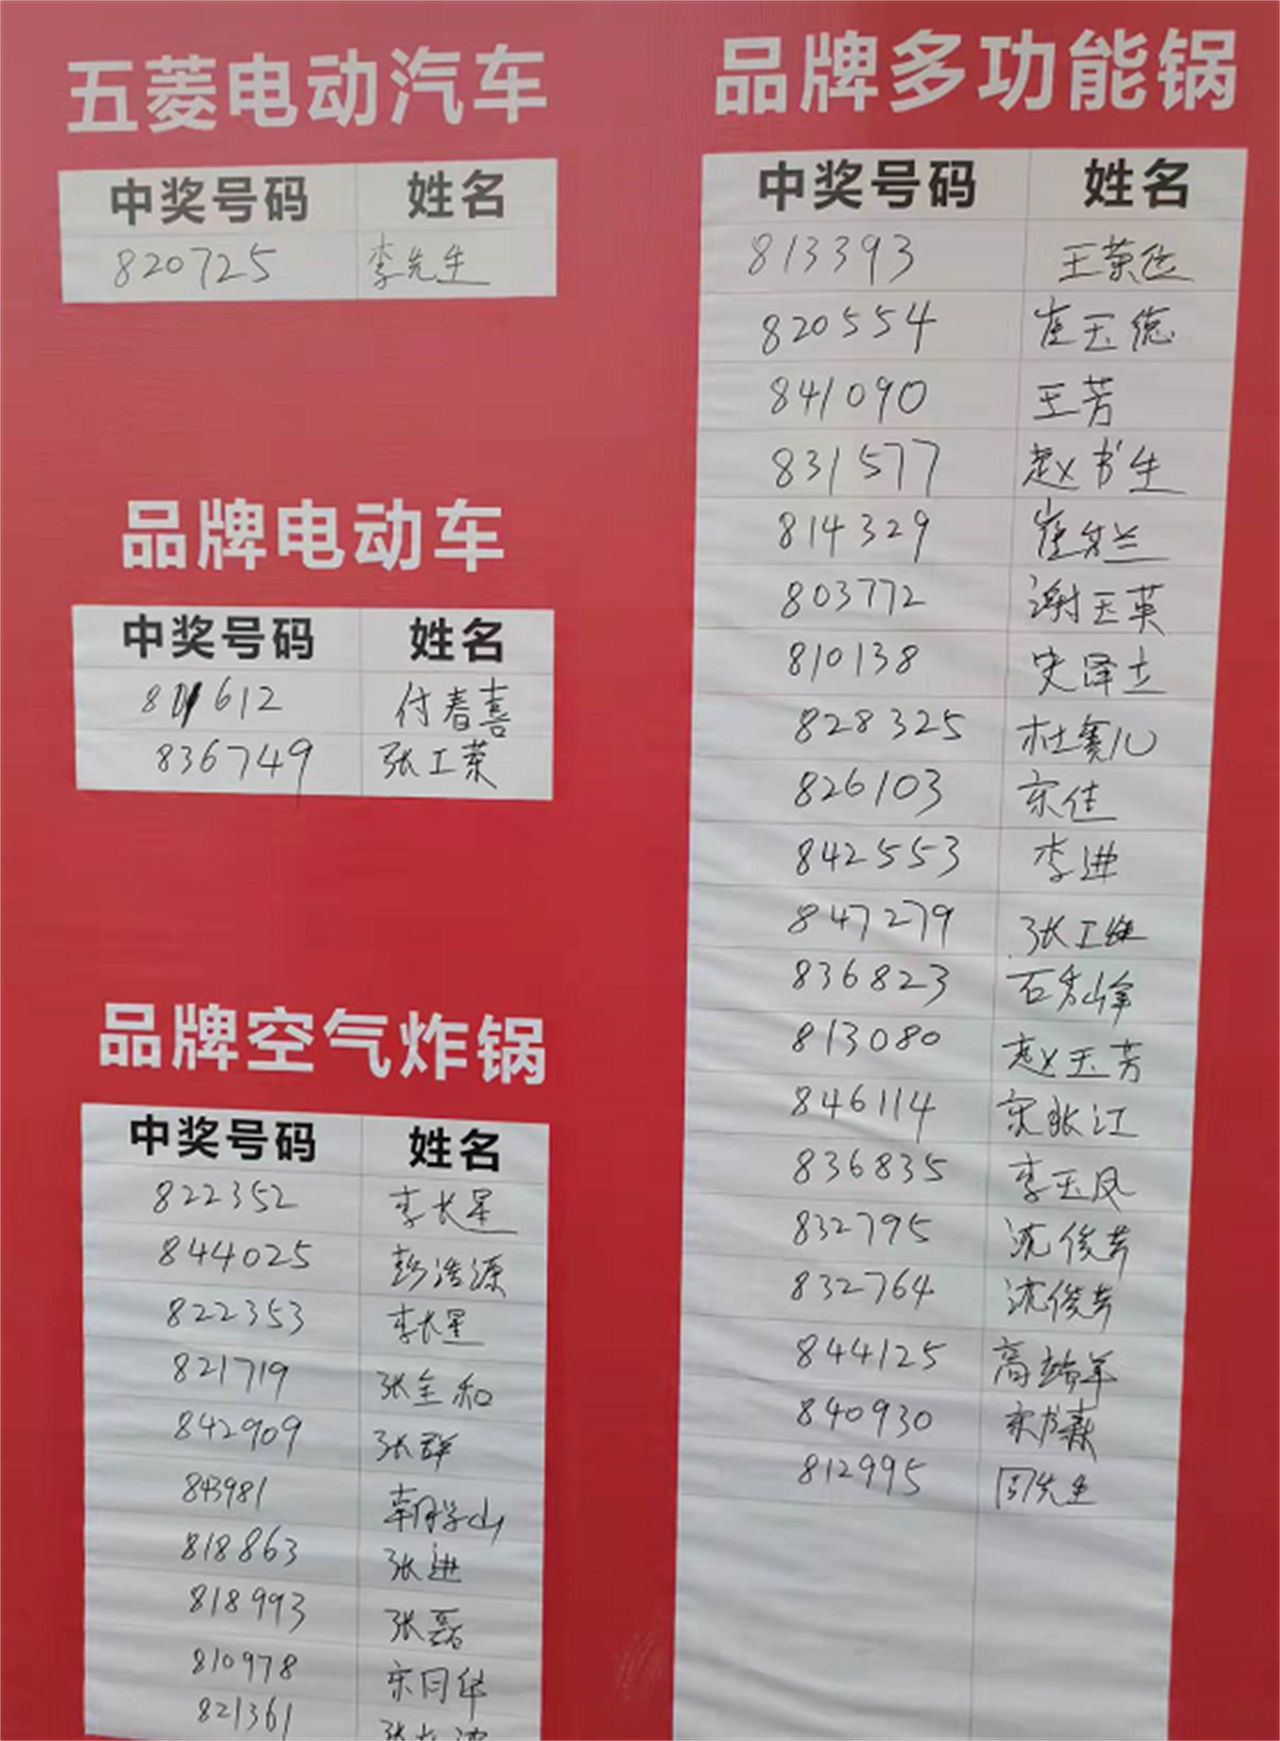 五菱电动汽车
中奖号码 姓名
820725 李先生
品牌电动车
中奖号码 姓名
801612 付春喜
836749 张工荣
品牌空气炸锅
中奖号码 姓名
822352 李长星
844025 彭浩源
822353 李长星
821719 张全和
842909 张群
843981
818863 张进
818993 张磊
810978 宋同华
821361
品牌多功能锅
中奖号码 姓名
813393 王荣
820554 崔玉德
841090 王芳
831577 赵书生
814329 崔兰
803772 谢玉英
810138 史泽立
828325 杜赛儿
826103 宋佳
842553 李进
847279 张工
836823 石秀峰
813080 赵玉芳
846114 宋张江
836835 李玉凤
832795 沈俊芳
832764 沈俊芳
844125 高
840930 宋书森
812995 周先生